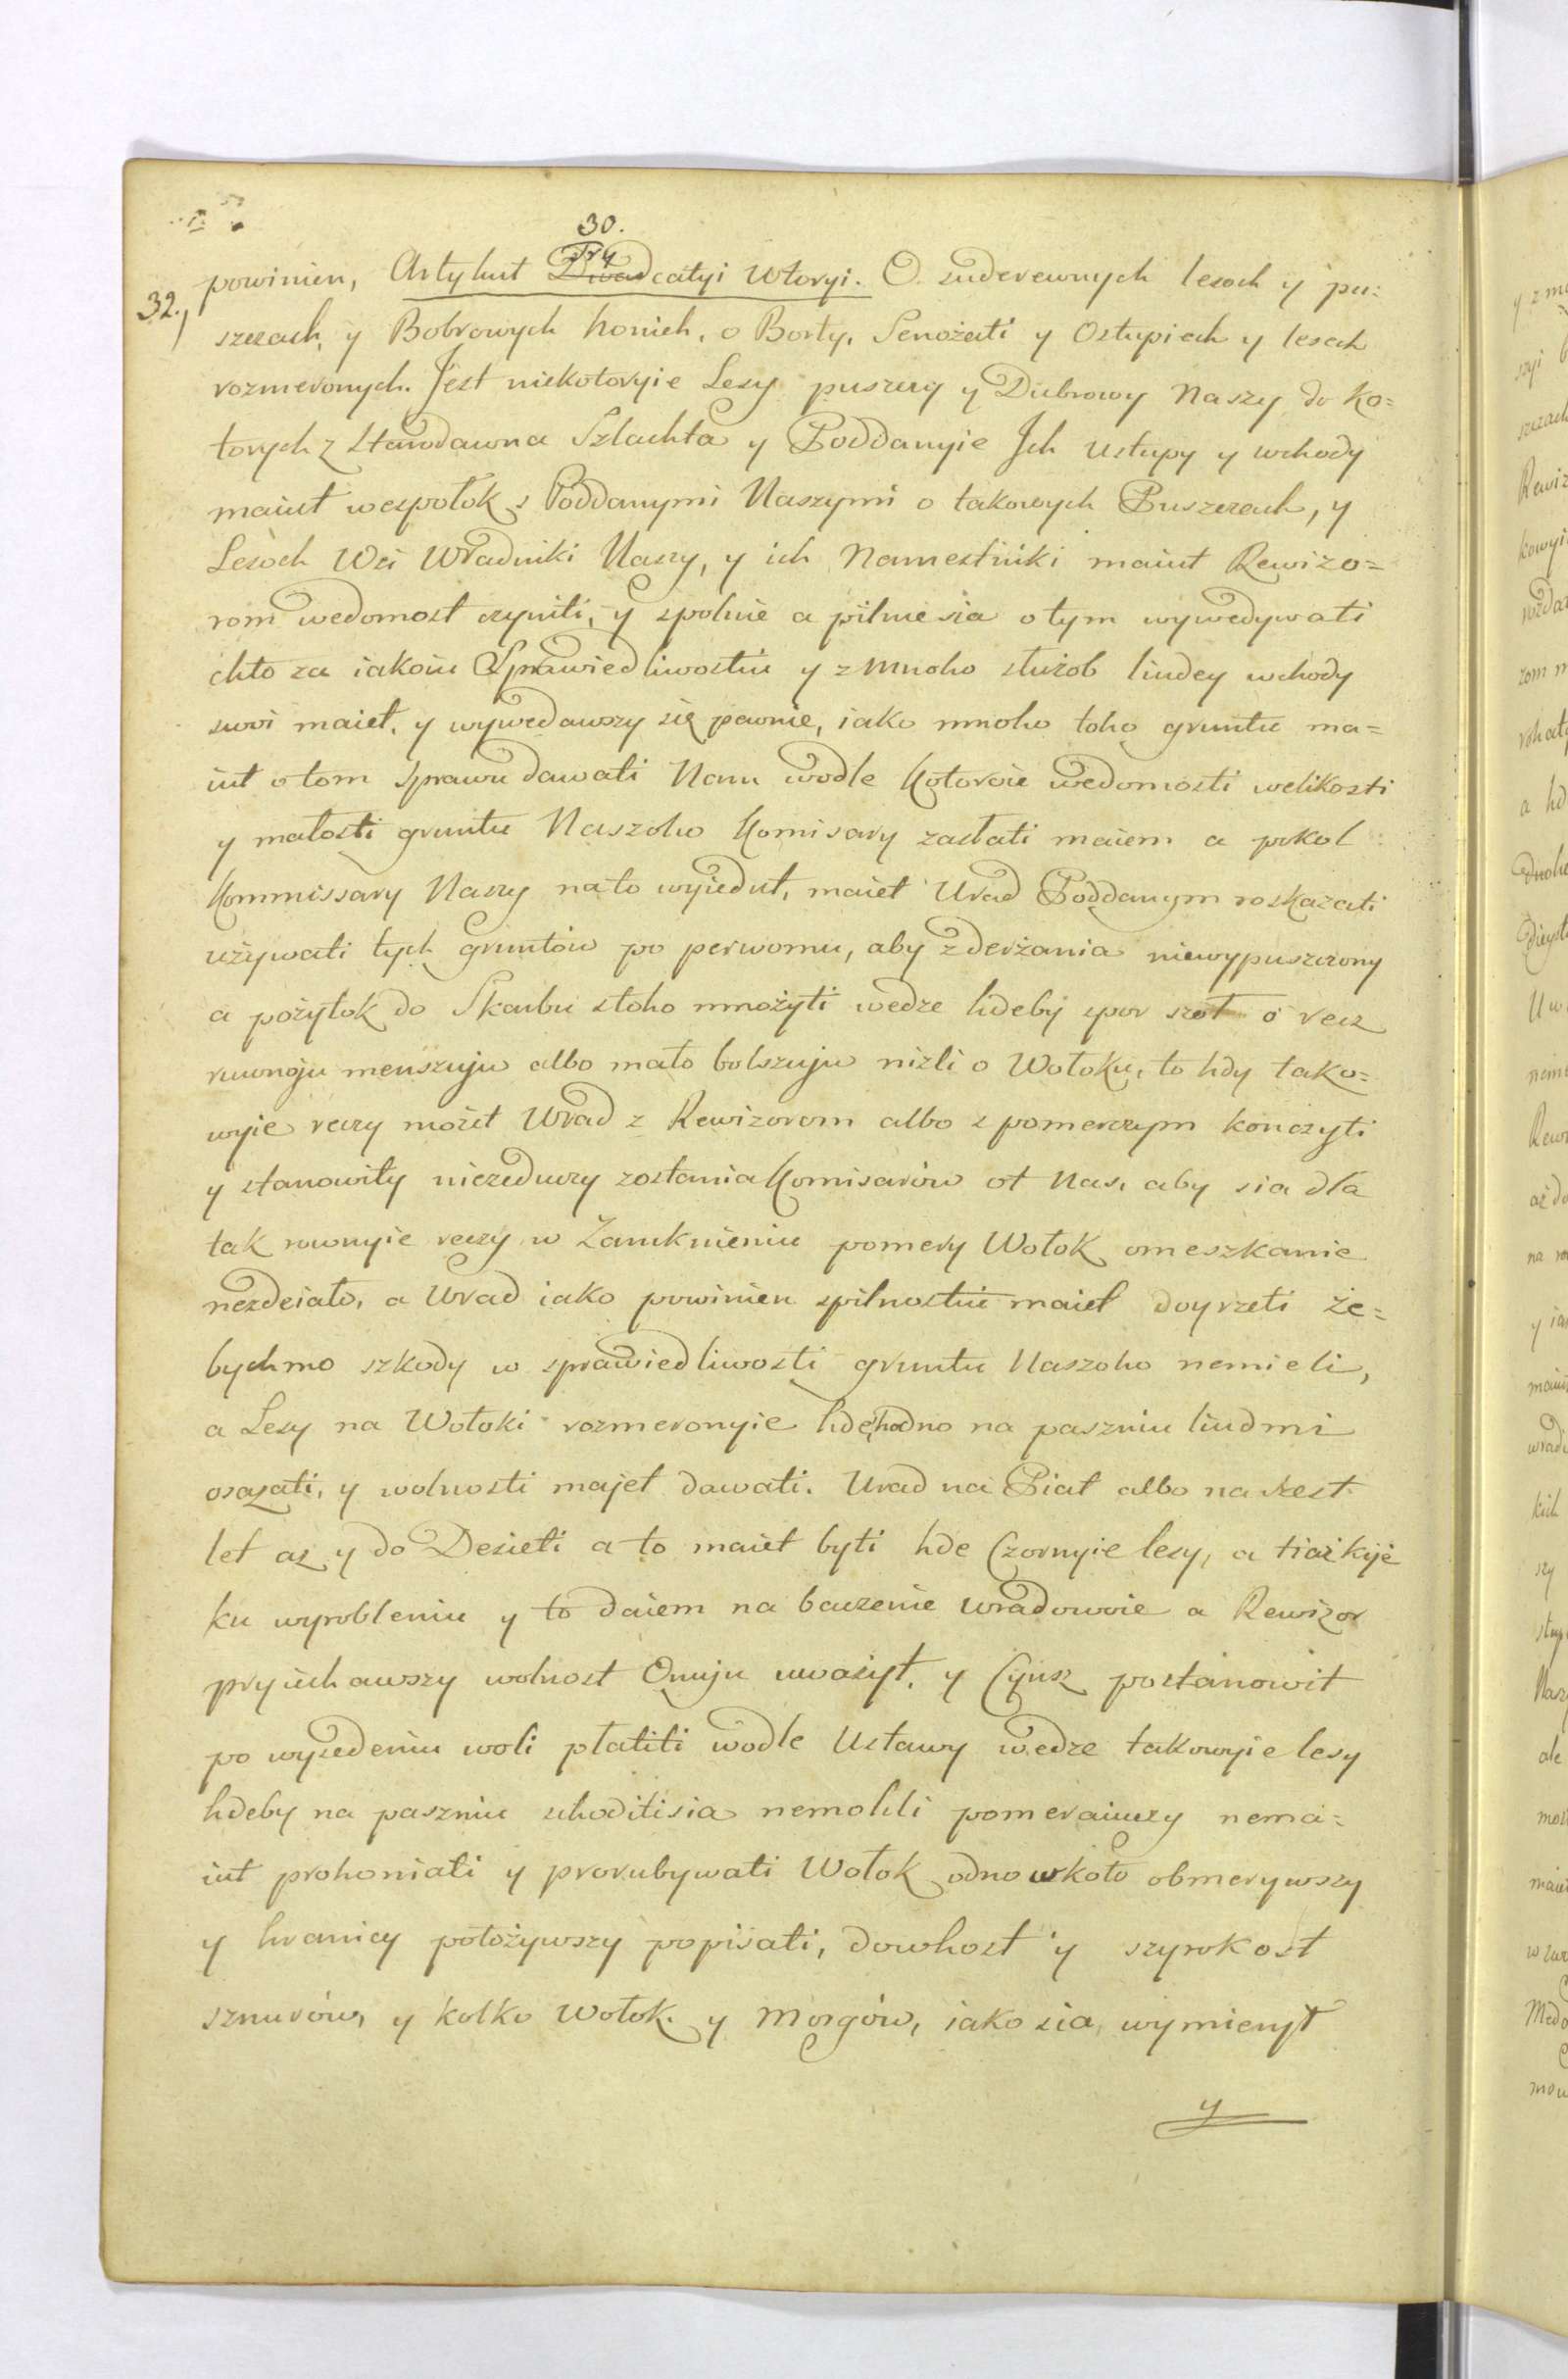 30.
Try
32., powinien, Artykuł Dwadcatyi Wtoryi. O suderewnych lesoch y pu=
szczach, y Bobrowych honich, o Borty, Senożati y Ostupiech y lesach
rozmeronych. Jest niekotoryie Lesy puszczy y Dubrowy Naszy do ko=
torych z Starodawna Szlachta y Poddanyie Jch Ustupy y wchody
maiut wespołok s Poddanymi Naszymi o takowych Puszczach, y
Lesoch Wsi Wradniki Naszy, y ich Namestniki maiut Rewizo=
rom wedomost czyniti, y spolnie a pilnie sia o tym wywedywati
chto za iakoiu Sprawiedliwostiu y z mnoho służob liudey wchody
swoi maiet, y wywedawszy się pewnie, iako mnoho toho gruntu ma=
iut o tom sprawu dawati Nam wodle kotoroie wedomosti welikosti
y małosti gruntu Naszoho Komisary zasłati maiem a pokol
Kommissary Naszy na to wyiedut, maiet Urad Poddanym roskazati
używati tych gruntów po perwomu, aby z derżania niewypuszczony
a pożytok do Skarbu stoho mnożyti wedze hdeby spor szoł o recz
ruwnoju menszuju albo mało bolszuju niżli o Wołoku, to hdy tako=
wyie reczy możet Wrad z Rewizorom albo z pomerczym konczyti
y stanowity nieżeduczy zosłania Komisarów ot Nas, aby sia dla
tak rownyie reczy w Zamknieniu pomery Wołok omeszkanie
nezdeiało, a Wrad iako powinien spilnostiu maiet doyrzeti że=
bychmo szkody w sprawiedliwosti gruntu Naszoho nemieli,
a Lesy na Wołoki rozmeronyie hde hodno na paszniu liudmi
osażati, y wolnosti majet dawati. Urad na Piat albo na szest
let aż y do Desieti a to maiet byti hde Czornyie lesy, a tiażkije
ku wyrobleniu y to daiem na baczenie wradowoie a Rewizor
pryiechawszy wolnost Onuju uwożyt, y Czynsz postanowit
po wysedeniu woli płatiti wodle Ustawy wedze takowyie lesy
hdeby na paszniu uhoditisia nemohli pomeraiuczy nema=
iut prohoniati y prorubywati Wołok odno wkoło obmerywszy
y hranicy położywszy popisati, dowhost y szyrokost
sznurów, y kolko Wołok y Morgów, iako sia wymieryt
y